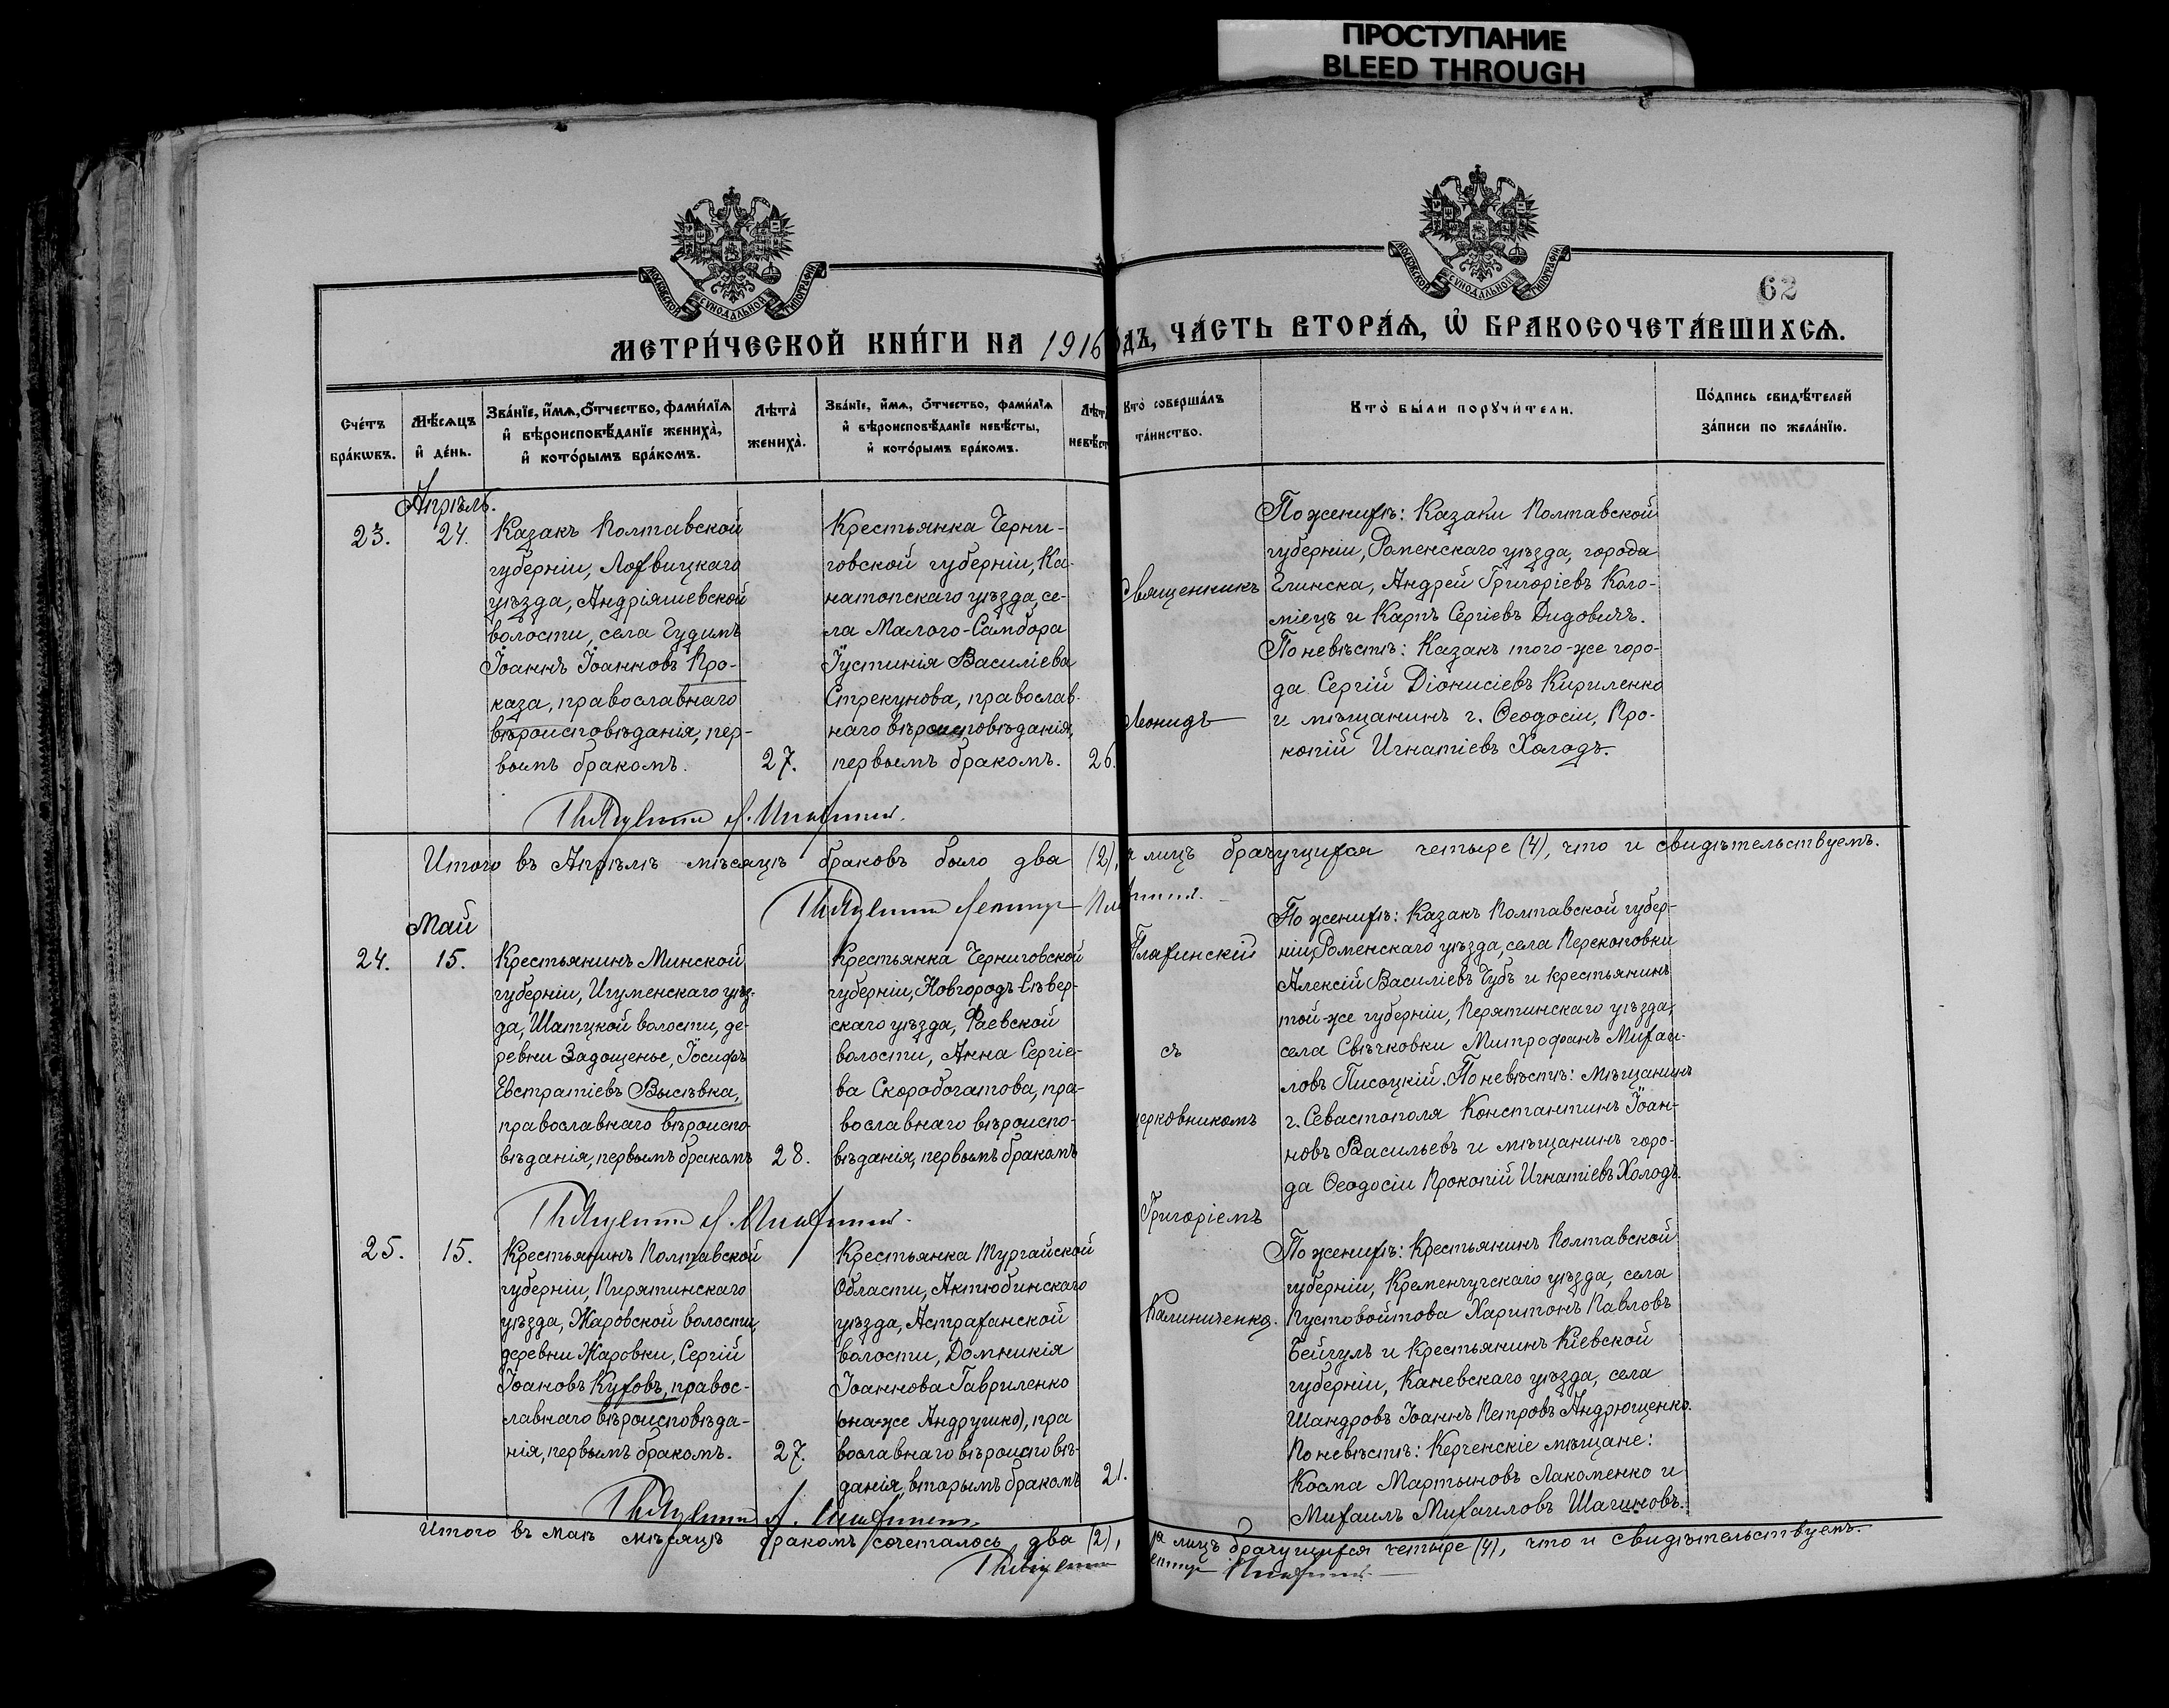 ПРОСТУПАНИЕ
BLEED THROUGH
МОСКОВСКОЙ СѴНОДАЛЬНОЙ ТИПОГРАФІИ
МОСКОВСКОЙ СѴНОДАЛЬНОЙ ТИПОГРАФІИ
62
МЕТРИ́ЧЕСКОЙ КНИ́ГИ НА 1916 ДЪ, ЧА́СТЬ ВТОРА́Ѧ, Ѽ БРАКОСОЧЕТА́ВШИХСѦ.
Сче́тъ
бра́кѡвъ.
Мѣ́сѧцъ
и҆ де́нь.
Зва́нїе, и҆́мѧ, ѻ҆́тчество, фами́лїѧ
и҆ вѣроисповѣ́данїе жениха̀,
и҆ кото́рымъ бра́комъ.
Лѣта̀
жениха̀.
Зва́нїе, и҆́мѧ, ѻ҆́тчество, фами́лїѧ
и҆ вѣроисповѣ́данїе невѣ́сты,
и҆ кото́рымъ бра́комъ.
Лѣта
невѣст
Кто̀ соверша́лъ
та́инство.
Кто̀ бы́ли порꙋчи́тели.
По́дпись свидѣ́телей
за́писи по жела́нїю.
Апрѣль.
23.
24.
Казакъ Полтавской
губерніи, Лохвицкаго
уѣзда, Андріяшевской
волости, села Гудимъ
Іоаннъ Іоанновъ Про-
каза, православнаго
вѣроисповѣданія, пер-
вымъ бракомъ.
27.
Крестьянка Черни-
говской губерніи, Ка-
натопскаго уѣзда, се-
ла Малого-Самбора
Іустинія Василіева
Стрекунова, православ-
наго вѣроисповѣданія,
первымъ бракомъ.
26.
Священникъ
Леонидъ
По женихѣ: Казаки Полтавской
губерніи, Роменскаго уѣзда, города
Глинска, Андрей Григоріевъ Коло-
міецъ и Карпъ Сергіевъ Дидовичъ.
По невѣстѣ: Казакъ того-же горо-
да Сергій Діонисіевъ Кириленко
и мѣщанинъ г. Ѳеодосіи, Про-
копій Игнатіевъ Холодъ.
Итого въ Апрѣлѣ мѣсяцѣ браковъ было два (2), а лицъ брачущихся четыре (4), что и свидѣтельствуемъ.
Май
24.
15.
Крестьянинъ Минской
губерніи, Игуменскаго уѣз-
да, Шатцкой волости, де-
ревни Задощенье, Іосифъ
Евстратіевъ Высѣвка,
православнаго вѣроиспо-
вѣданія, первымъ бракомъ
28.
Крестьянка Черниговской
губерніи, Новгородъ-Сѣвер-
скаго уѣзда, Раевской
волости, Анна Сергіе-
ва Скоробогатова, пра-
вославнаго вѣроиспо-
вѣданія, первымъ бракомъ
Плахинскій
съ
церковникомъ
Григоріемъ
По женихѣ: Казакъ Полтавской губер-
ніи, Роменскаго уѣзда, села Перекоповки
Алексій Василіевъ Чубъ и крестьянинъ
той-же губерніи, Перятинскаго уѣзда,
села Свѣчковки Митрофанъ Михаи-
ловъ Писоцкій. По невѣстѣ: мѣщанинъ
г. Севастополя Константинъ Іоан-
новъ Васильевъ и мѣщанинъ горо-
да Ѳеодосіи Прокопій Игнатіевъ Холодъ.
25.
15.
Крестьянинъ Полтавской
губерніи, Пирятинскаго
уѣзда, Жаровской волости,
деревни Жаровки, Сергій
Іоановъ Куховъ, правос-
лавнаго вѣроисповѣда-
нія, первымъ бракомъ.
27.
Крестьянка Тургайской
Области, Актюбинскаго
уѣзда, Астраханской
волости, Домникія
Іоаннова Гавриленко
(она-же Андрушко), пра
вославнаго вѣроисповѣ-
данія, вторымъ бракомъ
21.
Калиниченко.
По женихѣ: Крестьянинъ Полтавской
губерніи, Кременчугскаго уѣзда, села
Пустовойтова Харитонъ Павловъ
Бейгулъ и Крестьянинъ Кіевской
губерніи, Каневскаго уѣзда, села
Шандровъ Іоаннъ Петровъ Андрющенко.
По невѣстѣ: Керченскіе мѣщане:
Косма Мартыновъ Лакоменко и
Михаилъ Михаиловъ Шагиновъ.
Итого въ маѣ мѣсяцѣ бракомъ сочеталось два (2), а лицъ брачущихся четыре (4), что и свидѣтельствуемъ.